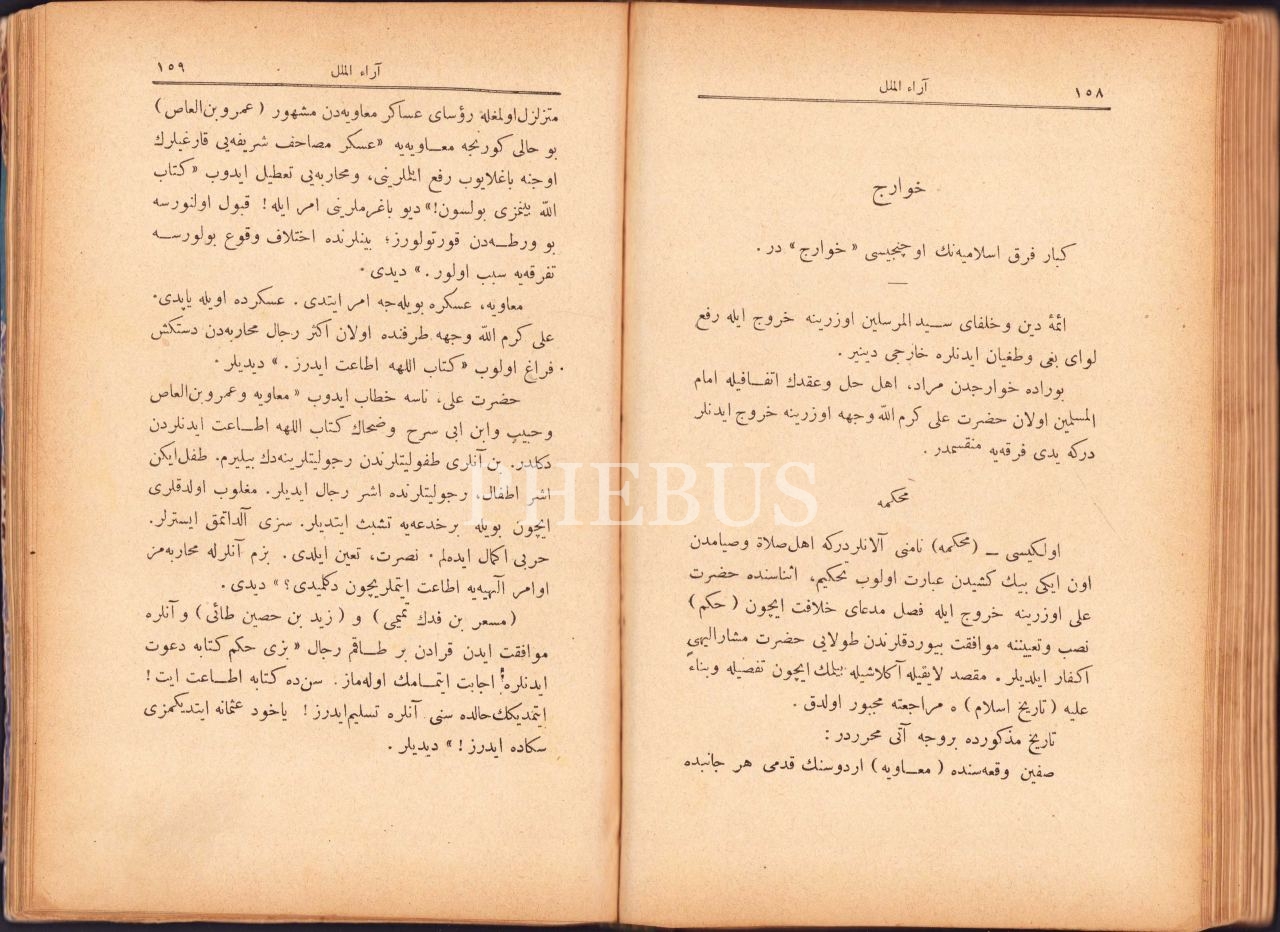 ١٥٨
آراء الملل
خوارج
كبار فرق اسلاميه‌نك اوچنجيسى «خوارج» در .
ائمهٔ دين وخلفاى سيد المرسلين اوزرينه خروج ايله رفع
لواى بغى وطغيان ايدنلره خارجى دينير .
بوراده خوارجدن مراد، اهل حل وعقدك اتفاقيله امام
المسلمين اولان حضرت على كرم الله وجهه اوزرينه خروج ايدنلر
دركه يدى فرقه‌يه منقسمدر .
محكمه
اولكيسى ـ (محكمه) نامنى آلانلردركه اهل صلاة وصيامدن
اون ايكى بيك كشيدن عبارت اولوب تحكيم، اثناسنده حضرت
على اوزرينه خروج ايله فصل مدعاى خلافت ايچون (حكم)
نصب وتعييننه موافقت بيوردقلرندن طولايى حضرت مشاراليهى
اكفار ايلديلر . مقصد لايقيله آكلاشيله بيلمك ايچون تفصيله وبناءً
عليه (تاريخ اسلام) ه مراجعته مجبور اولدق .
تاريخ مذكورده بروجه آتى محرردر :
صفين وقعه‌سنده (معاويه) اردوسنك قدمى هر جانبده
١٥٩
آراء الملل
متزلزل اولمغله رؤساى عساكر معاويه‌دن مشهور (عمرو بن العاص)
بو حالى كورنجه معاويه‌يه «عسكر مصاحف شريفه‌يى قارغيلرك
اوجنه باغلايوب رفع ايتملرينى، ومحاربه‌يى تعطيل ايدوب «كتاب
الله بينمزى بولسون!» ديو باغرملرينى امر ايله! قبول اولنورسه
بو ورطه‌دن قورتولورز؛ بينلرنده اختلاف وقوع بولورسه
تفرقه‌يه سبب اولور .» ديدى .
معاويه، عسكره بويله‌جه امر ايتدى . عسكرده اويله ياپدى.
على كرم الله وجهه طرفنده اولان اكثر رجال محاربه‌دن دستكش
فراغ اولوب «كتاب اللهه اطاعت ايدرز .» ديديلر .
حضرت على، ناسه خطاب ايدوب «معاويه وعمرو بن العاص
وحبيب وابن ابى سرح وضحاك كتاب اللهه اطاعت ايدنلردن
دكلدر. بن آنلرى طفوليتلرندن رجوليتلرينه‌دك بيليرم. طفل ايكن
اشر اطفال، رجوليتلرنده اشر رجال ايديلر. مغلوب اولدقلرى
ايچون بويله برخدعه‌يه تشبث ايتديلر. سزى آلداتمق ايسترلر.
حربى اكمال ايده‌لم. نصرت، تعين ايلدى. بزم آنلرله محاربه‌مز
اوامر آلهيه‌يه اطاعت ايتملريچون دكلميدى؟» ديدى .
(مسعر بن فدك تميمى) و (زيد بن حصين طائى) و آنلره
موافقت ايدن قرادن بر طاقم رجال «بزى حكم كتابه دعوت
ايدنلره اجابت ايتمامك اوله‌ماز. سن‌ده كتابه اطاعت ايت!
ايتمديكك حالده سنى آنلره تسليم ايدرز! ياخود عثمانه ايتديكمزى
سكاده ايدرز!» ديديلر .
PHEBUS